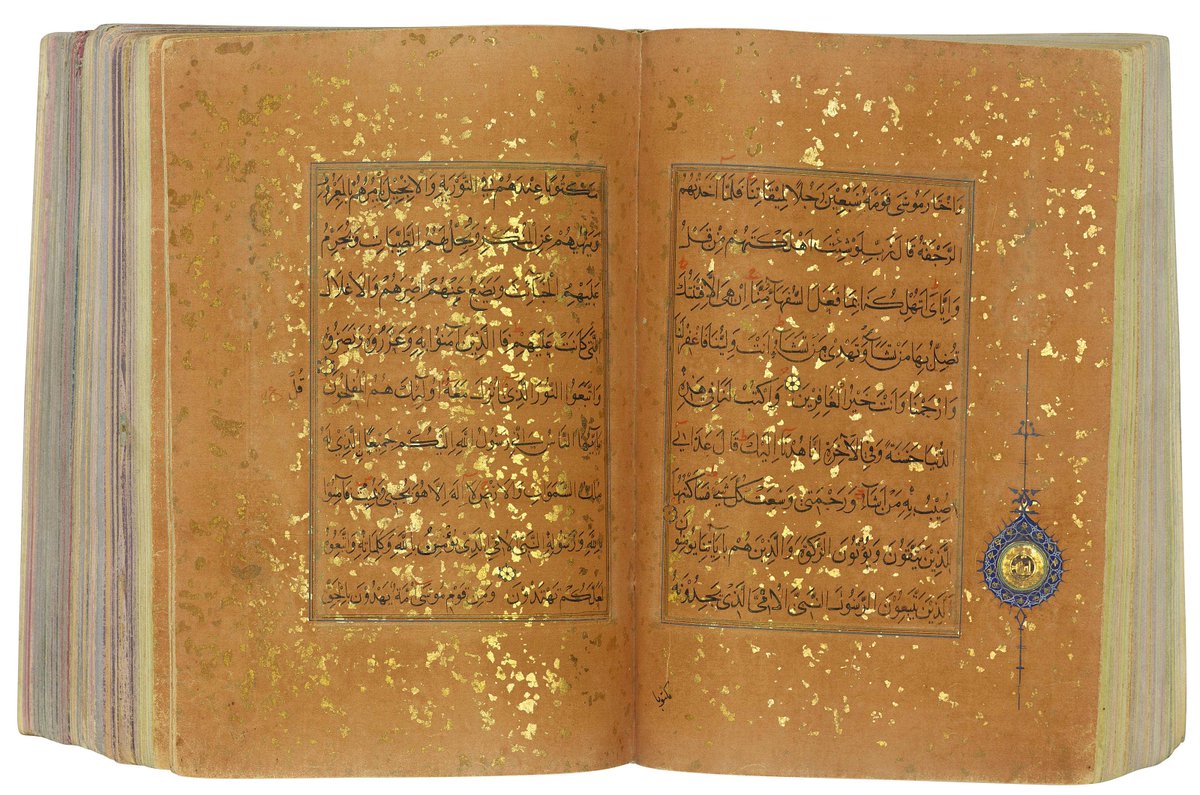 وَاخْتَارَ مُوسَى قَوْمَهُ سَبْعِينَ رَجُلًا لِمِيقَاتِنَا فَلَمَّا أَخَذَتْهُمُ
الرَّجْفَةُ قَالَ رَبِّ لَوْ شِئْتَ أَهْلَكْتَهُمْ مِنْ قَبْلُ
وَإِيَّايَ أَتُهْلِكُنَا بِمَا فَعَلَ السُّفَهَاءُ مِنَّا إِنْ هِيَ إِلَّا فِتْنَتُكَ
تُضِلُّ بِهَا مَنْ تَشَاءُ وَتَهْدِي مَنْ تَشَاءُ أَنْتَ وَلِيُّنَا فَاغْفِرْ لَنَا
وَارْحَمْنَا وَأَنْتَ خَيْرُ الْغَافِرِينَ وَاكْتُبْ لَنَا فِي هَذِهِ
الدُّنْيَا حَسَنَةً وَفِي الْآخِرَةِ إِنَّا هُدْنَا إِلَيْكَ قَالَ عَذَابِي
أُصِيبُ بِهِ مَنْ أَشَاءُ وَرَحْمَتِي وَسِعَتْ كُلَّ شَيْءٍ فَسَأَكْتُبُهَا
لِلَّذِينَ يَتَّقُونَ وَيُؤْتُونَ الزَّكٰوةَ وَالَّذِينَ هُمْ بِآيَاتِنَا يُؤْمِنُونَ
الَّذِينَ يَتَّبِعُونَ الرَّسُولَ النَّبِيَّ الْأُمِّيَّ الَّذِي يَجِدُونَهُ
مكتوبا
مَكْتُوبًا عِنْدَهُمْ فِي التَّوْرٰيةِ وَالْإِنْجِيلِ يَأْمُرُهُمْ بِالْمَعْرُوفِ
وَيَنْهٰيهُمْ عَنِ الْمُنْكَرِ وَيُحِلُّ لَهُمُ الطَّيِّبَاتِ وَيُحَرِّمُ
عَلَيْهِمُ الْخَبَائِثَ وَيَضَعُ عَنْهُمْ إِصْرَهُمْ وَالْأَغْلَالَ
الَّتِي كَانَتْ عَلَيْهِمْ فَالَّذِينَ آمَنُوا بِهِ وَعَزَّرُوهُ وَنَصَرُوهُ
وَاتَّبَعُوا النُّورَ الَّذِي أُنْزِلَ مَعَهُ أُولَئِكَ هُمُ الْمُفْلِحُونَ
قُلْ
يَا أَيُّهَا النَّاسُ إِنِّي رَسُولُ اللَّهِ إِلَيْكُمْ جَمِيعًا الَّذِي لَهُ
مُلْكُ السَّمٰوَاتِ وَالْأَرْضِ لَا إِلَهَ إِلَّا هُوَ يُحْيِي وَيُمِيتُ فَآمِنُوا
بِاللَّهِ وَرَسُولِهِ النَّبِيِّ الْأُمِّيِّ الَّذِي يُؤْمِنُ بِاللَّهِ وَكَلِمَاتِهِ وَاتَّبِعُوهُ
لَعَلَّكُمْ تَهْتَدُونَ وَمِنْ قَوْمِ مُوسَى أُمَّةٌ يَهْدُونَ بِالْحَقِّ